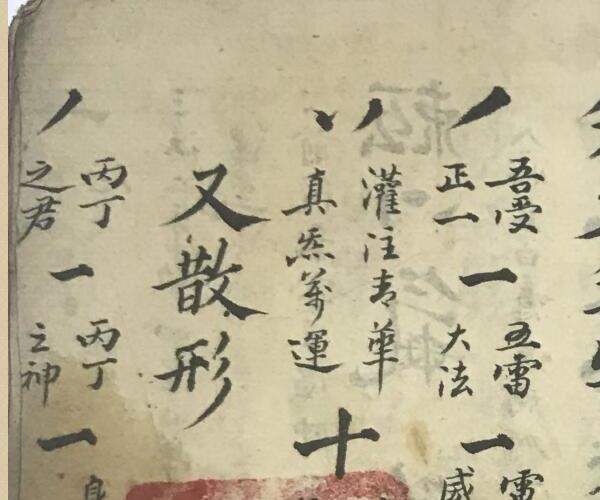 丿
吾受
正一
一
五雷
大法
一
雷
威
丷
灌注青華
真炁萬運
十
又散形
丿
丙丁
之君
一
丙丁
之神
一